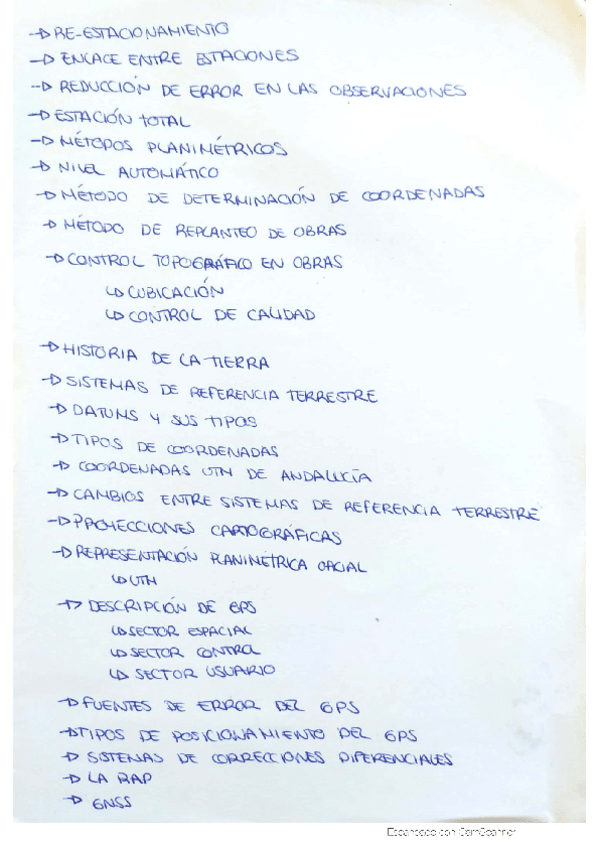 → RE-ESTACIONAMIENTO
→ ENLACE ENTRE ESTACIONES
→ REDUCCIÓN DE ERROR EN LAS OBSERVACIONES
→ ESTACIÓN TOTAL
→ MÉTODOS PLANIMÉTRICOS
→ NIVEL AUTOMÁTICO
→ MÉTODO DE DETERMINACIÓN DE COORDENADAS
→ MÉTODO DE REPLANTEO DE OBRAS
→ CONTROL TOPOGRÁFICO EN OBRAS
↳ CUBICACIÓN
↳ CONTROL DE CALIDAD
→ HISTORIA DE LA TIERRA
→ SISTEMAS DE REFERENCIA TERRESTRE
→ DATUMS Y SUS TIPOS
→ TIPOS DE COORDENADAS
→ COORDENADAS UTM DE ANDALUCÍA
→ CAMBIOS ENTRE SISTEMAS DE REFERENCIA TERRESTRE
→ PROYECCIONES CARTOGRÁFICAS
→ REPRESENTACIÓN PLANIMÉTRICA OFICIAL
↳ UTM
→ DESCRIPCIÓN DE GPS
↳ SECTOR ESPACIAL
↳ SECTOR CONTROL
↳ SECTOR USUARIO
→ FUENTES DE ERROR DEL GPS
→ TIPOS DE POSICIONAMIENTO DEL GPS
→ SISTEMAS DE CORRECCIONES DIFERENCIALES
→ LA RAP
→ GNSS
Escaneado con CamScanner